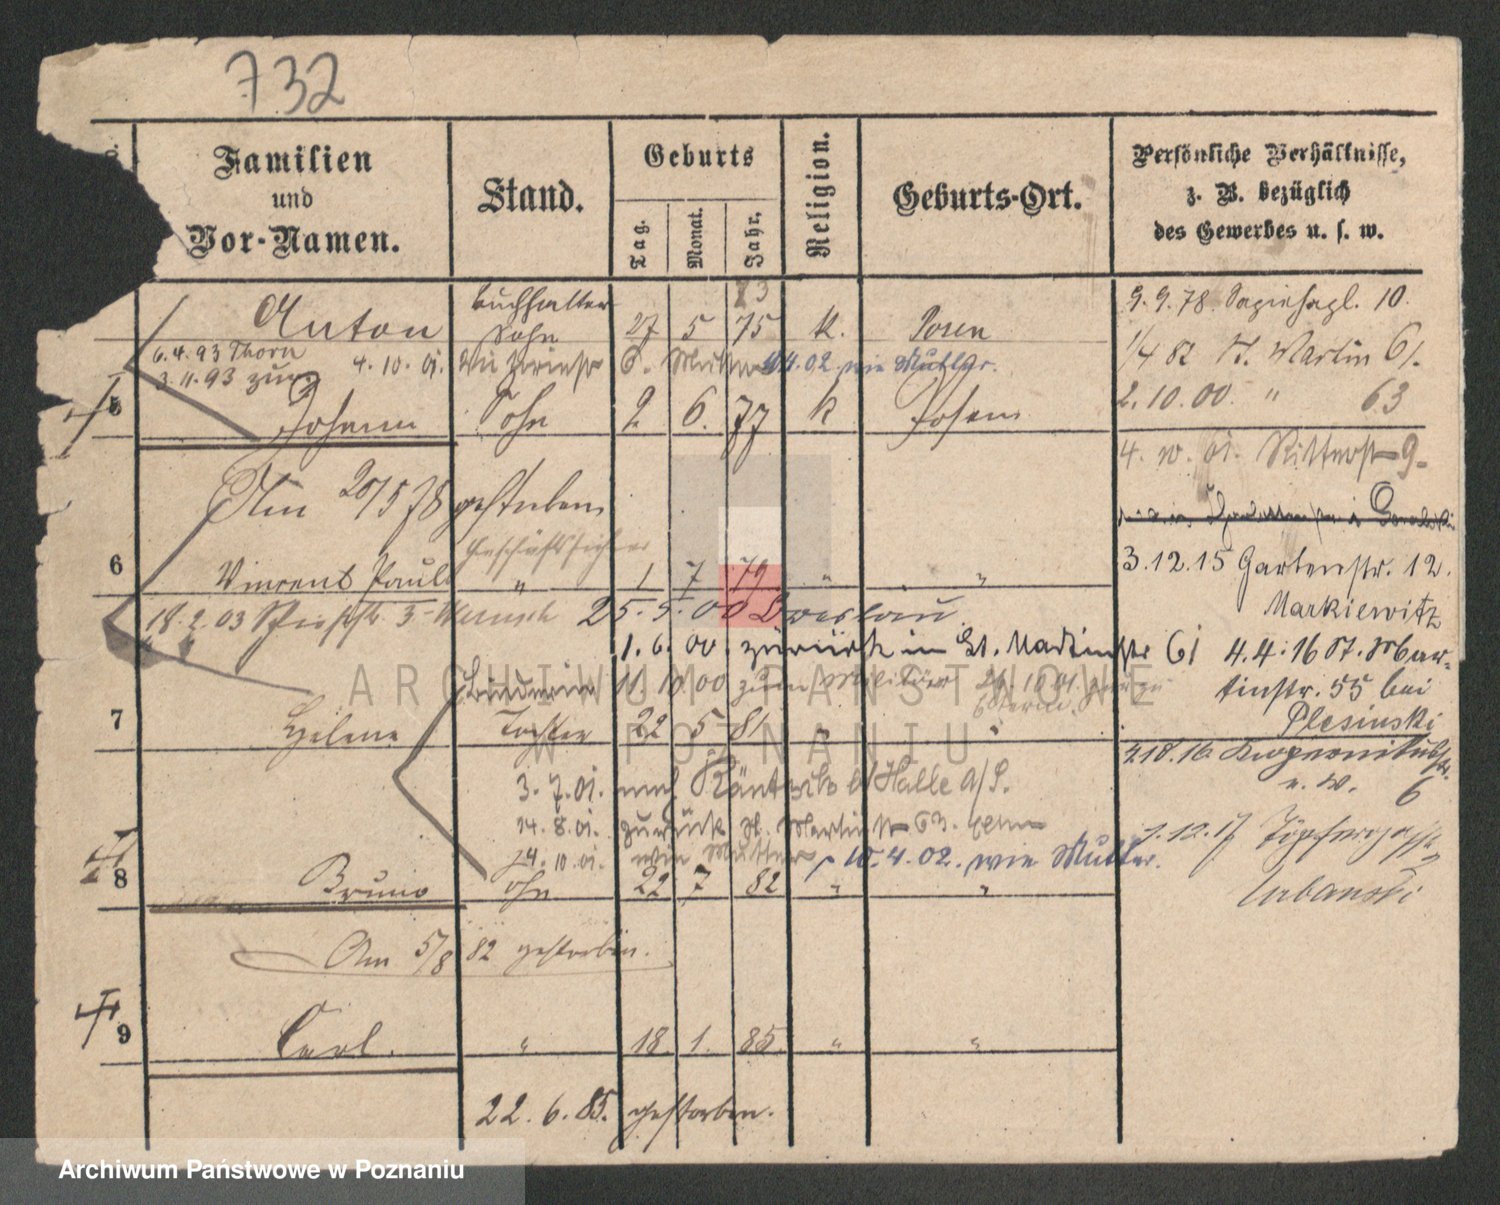 732
Familien
und
Vor-Namen.
Stand.
Geburts
Tag.
Monat.
Jahr.
Religion.
Geburts-Ort.
Persönliche Verhältnisse,
z. B. bezüglich
des Gewerbes u. s. w.
Buchhalter
73
9.9.78. Sapiehapl. 10.
Anton Sohn 27 5 75 k. Posen
1/4 82 St. Martin 61.
6.4.93 Thorn
4.10.01. wie Mutter 4.4.02. wie Mutter.
3.11.93 zur
2.10.00. " 63
5 Johann Sohn 2 6. 77 k Posen
4. 10. 01. Ritterst 9.
Am 20/5 78 gestorben
3.12.15 Gartenstr. 12.
Markiewitz
Geschäftsführer
6 Vincent Paul " 1 7 79 " "
18.2.03 3 25.5.00 Breslau
1.6.00. zurück in St. Martinstr 61
4.4.16 St. Mar-
tinstr. 55 bei
Plesinski
11.10.00 zum Militär
7 Helene Tochter 22 5 81 " "
16.
6
3.7.01. nach b/Halle a/S.
14.8.01. zurück St. Martin 63.
1.12.17 Töpfergasse
Urbanski
4.10.01. wie Mutter, 10.4.02. wie Mutter.
8 Bruno Sohn 22 7 82 " "
Am 5/8 82 gestorben.
9 Carl. " 18. 1. 85. " "
22.6.85. gestorben.
ARCHIWUM PAŃSTWOWE
W POZNANIU
Archiwum Państwowe w Poznaniu